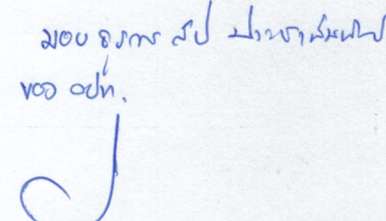 มอบ ธุรการ สป ประชาสัมพันธ์
ของ อปท.